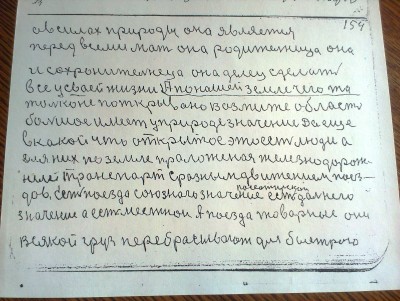 154
об силах природы она является
перед всеми мать она родительница она
и сохронительнеца она делец сделать
все у своей жизни. А по нашей земле чего та
только не поткрывано возмите область
большое имеет у природе значение Да еще
в какой что открытое это есть люди а
для них по земле проложеная железнодорож-
ный транспарт с разным движением поез-
дов, есть поезда союзного значение есть дальнего
пасажирской
значение а есть местной. А поезда товарные они
всякой груз перебрасывают для быстрого